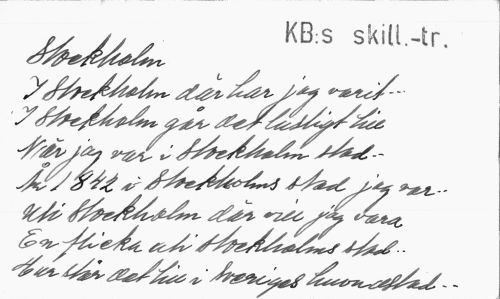 KB:s skill.-tr.
Stockholm
I Stockholm där har jag varit--
I Stockholm går det lustigt till
När jag var i Stockholm stad--
År 1842 i Stockholms stad jag var--
Uti Stockholm där vill jag vara
En flicka uti Stockholms stad--
Hur står det till i Sveriges huvudstad--